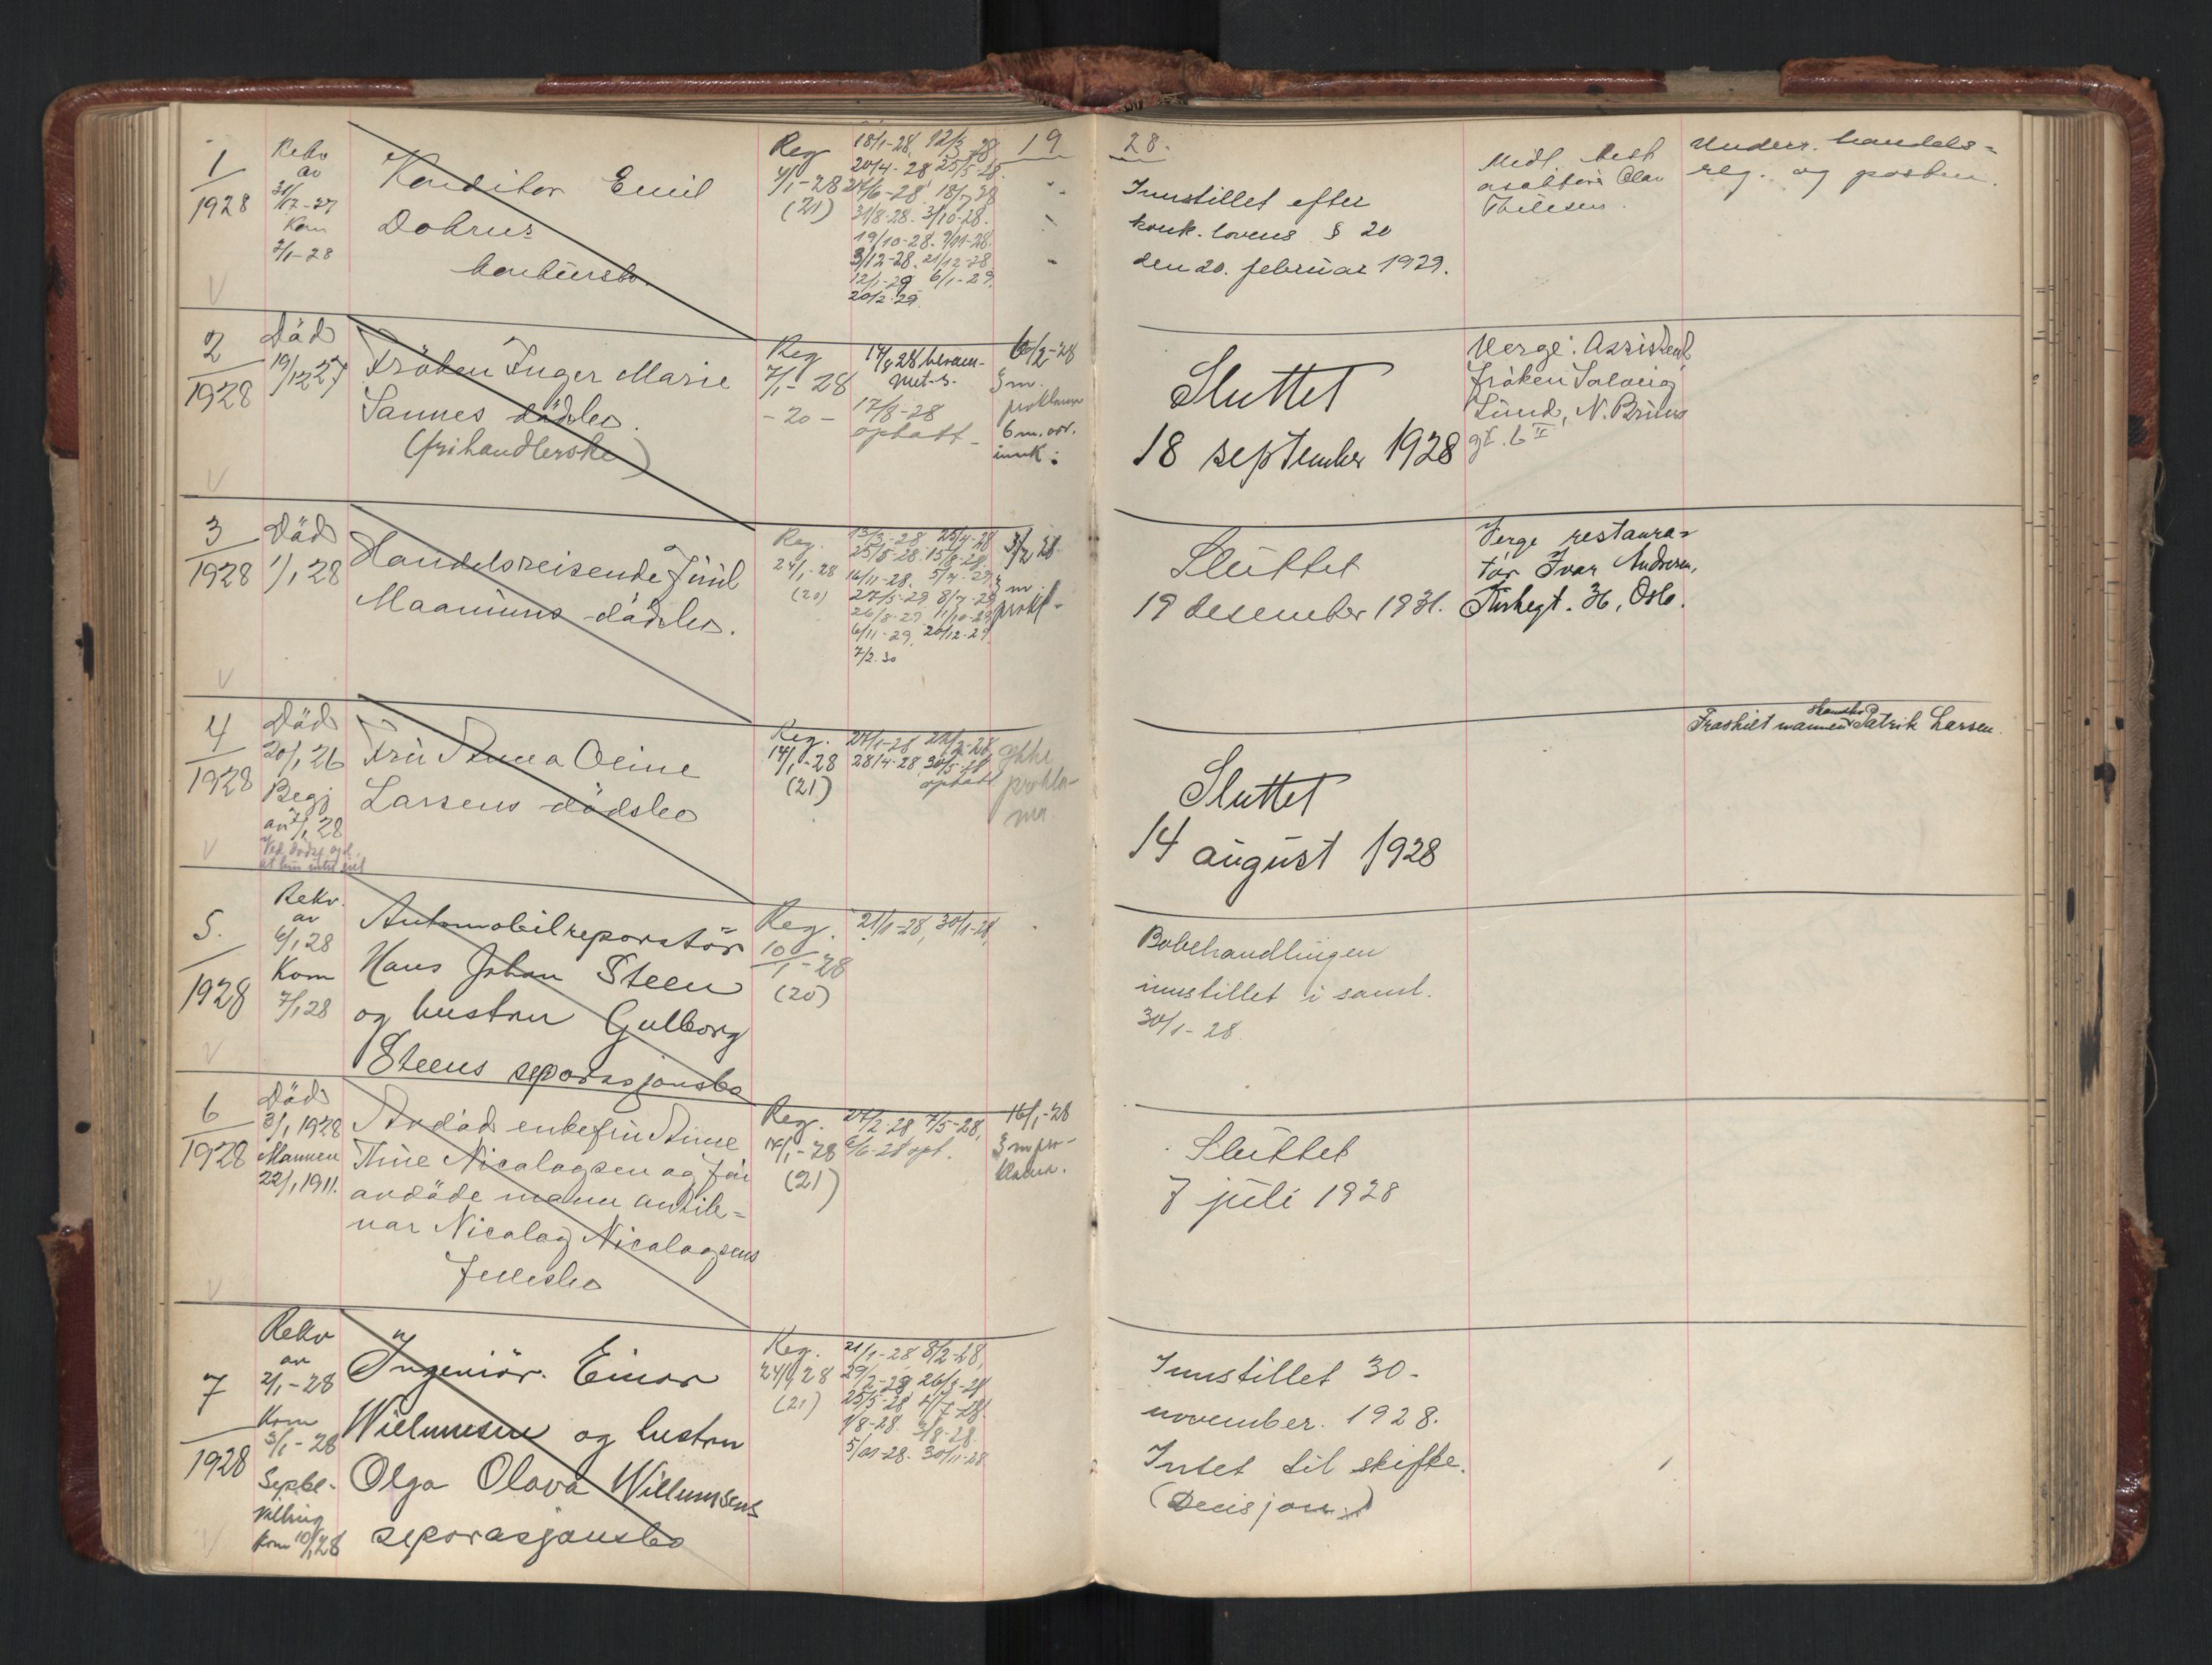 19 28.
1
1928
Rekv
av
31/12-27
Kom
2/1-28
Konditor Emil
Dohrns
konkursbo.
Reg
4/1-28
(21)
18/1-28, 12/3-28
20/4-28, 25/5-28.
31/8-28. 3/10-28.
19/10-28. 9/11-28.
3/12-28. 21/12-28
12/1-29 6/1-29.
20/2-29.
Innstillet efter
konk. lovens § 20
den 20. februar 1929.
Midl. best
Olav
Underr. handels-
reg. og posten.
2
1928
Död
19/12 27
Fröken Inger Marie
Sannes dödsbo.
(frihandlerske)
Reg
7/1-28
- 20 -
17/8-28
optatt
6/2-28
3 m.
proklama
6 m. arv.
innk.
Sluttet
18 september 1928
Verge: Assistent
fröken Solveig
Lund, N. Bruns
gt. 6 II
3
1928
Död
1/1 28
Handelsreisende Juul
Maanums dödsbo.
Reg.
24/1-28
(20)
13/3-28 25/4-28
25/5-28. 15/8-28.
16/11-28.
27/5-29
6/11-29, 20/12-29
7/2-30
3/2 28
3 m
prokl-
Sluttet
19 desember 1931.
Verge restaura-
tör Ivar Andresen,
Kirkegt. 36, Oslo.
4
1928
Död
20/1 26
Begj
av 7/1 28
Fru Anna Oline
Larsens dödsbo
Reg.
14/1-28
(21)
27/1-28
28/4-28 30/5-28
optatt
Ikke
prokla-
ma.
Sluttet
14 august 1928
Fraskilt mannen Patrik Larsen.
5.
1928
Rekv.
av
6/1 28
Kom
7/1 28
Automobilreparatör
Hans Johan Steen
og hustru Gulborg
Steens separasjonsbo
Reg.
10/1-28
(20)
21/1-28, 30/1-28,
Bobehandlingen
innstillet i saml.
30/1-28.
6
1928
Död
3/1 1928
Mannen
22/1 1911.
Avdöd enkefru Anne
Thine Nicolaysen og för
avdöde mann antik-
var Nicolay Nicolaysens
fellesbo
Reg.
14/1-28
(21)
27/2-28 7/5-28,
6/6-28 opt.
16/1-28
3 m pro-
klama.
Sluttet
7 juli 1928
7
1928
Rekv
av
2/1-28
Kom
3/1-28
Sepbe-
villing
kom 10/1 28
Ingeniör Einar
Willumsen og hustru
Olga Olava Willumsens
separasjonsbo
Reg.
24/1 28
(21)
21/1-28 8/2-28,
29/2-28 26/3-28
5/11-28. 30/11-28
Innstillet 30.
november. 1928.
Intet til skifte.
(Decisjon)